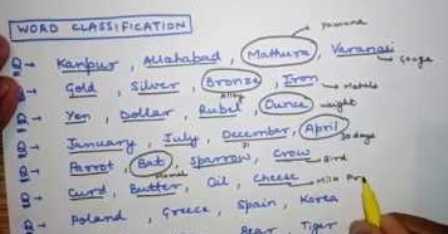 WORD CLASSIFICATION
Yamuna
Q → Kanpur, Allahabad, Mathura, Varanasi → Ganga
Q → Gold, Silver, Bronze, Iron → Metals
Alloy
Q → Yen, Dollar, Rubel, Ounce → weight
Q → January, July, December, April
31 30 days
Q → Parrot, Bat, Sparrow, Crow → Bird
Q → Curd, Butter, Oil, Cheese → Milk Pr
Q → Poland, Greece, Spain, Korea
Bear, Tiger